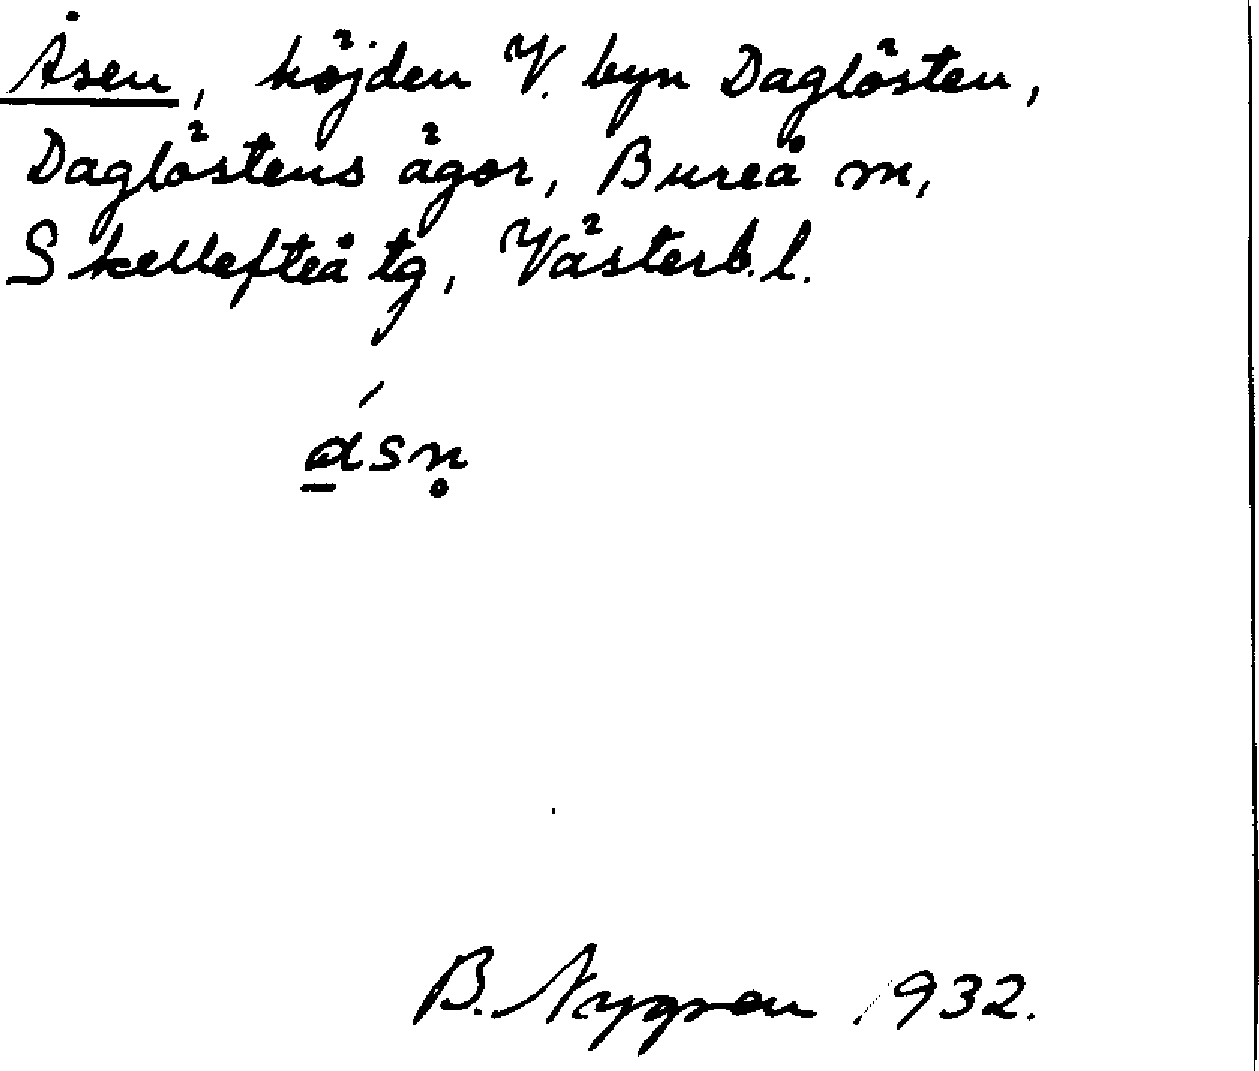 Åsen, höjden V. byn Daglösten,
Daglöstens ägor, Bureå m,
Skellefteå tg, Västerb. l.
ása̱n̥
B. Nygren 1932.